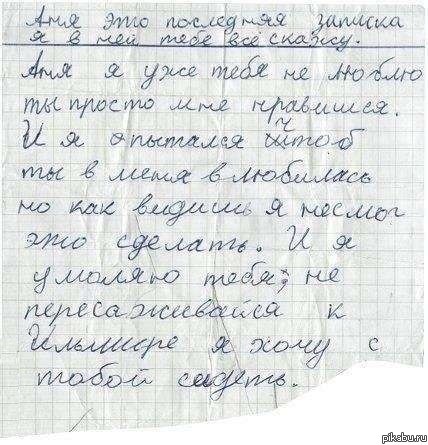 Аня это последняя записка
я в ней тебе всё скажу.
Аня я уже тебя не люблю
ты просто мне нравишся.
И я опытался чтоб
ты в меня влюбилась
но как видишь я несмог
это сделать. И я
умоляю тебя, не
пересаживайся к
Ильмире я хочу с
тобой сидеть.
pikabu.ru